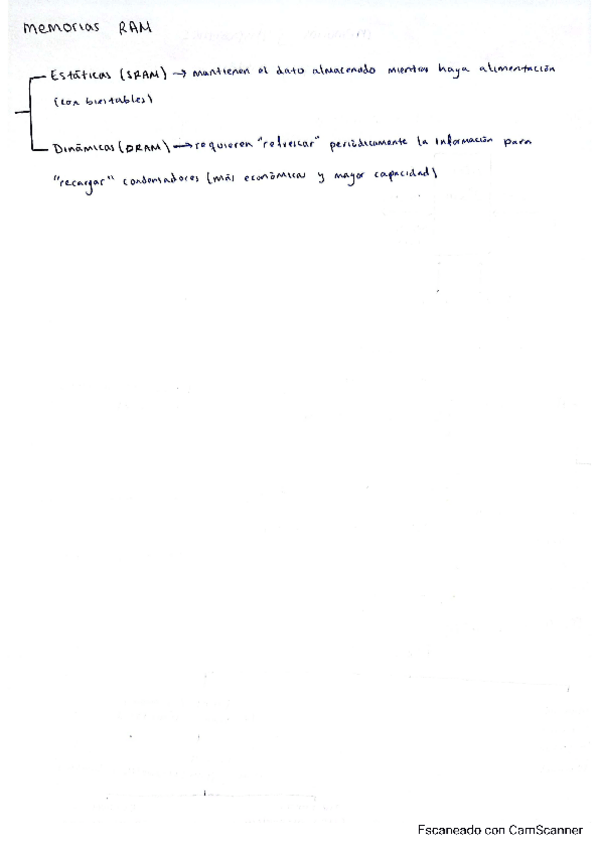 memorias RAM
Estáticas (SRAM) → mantienen el dato almacenado mientras haya alimentación
(con biestables)
Dinámicas (DRAM) → requieren "refrescar" periódicamente la información para
"recargar" condensadores (más económicas y mayor capacidad)
Escaneado con CamScanner